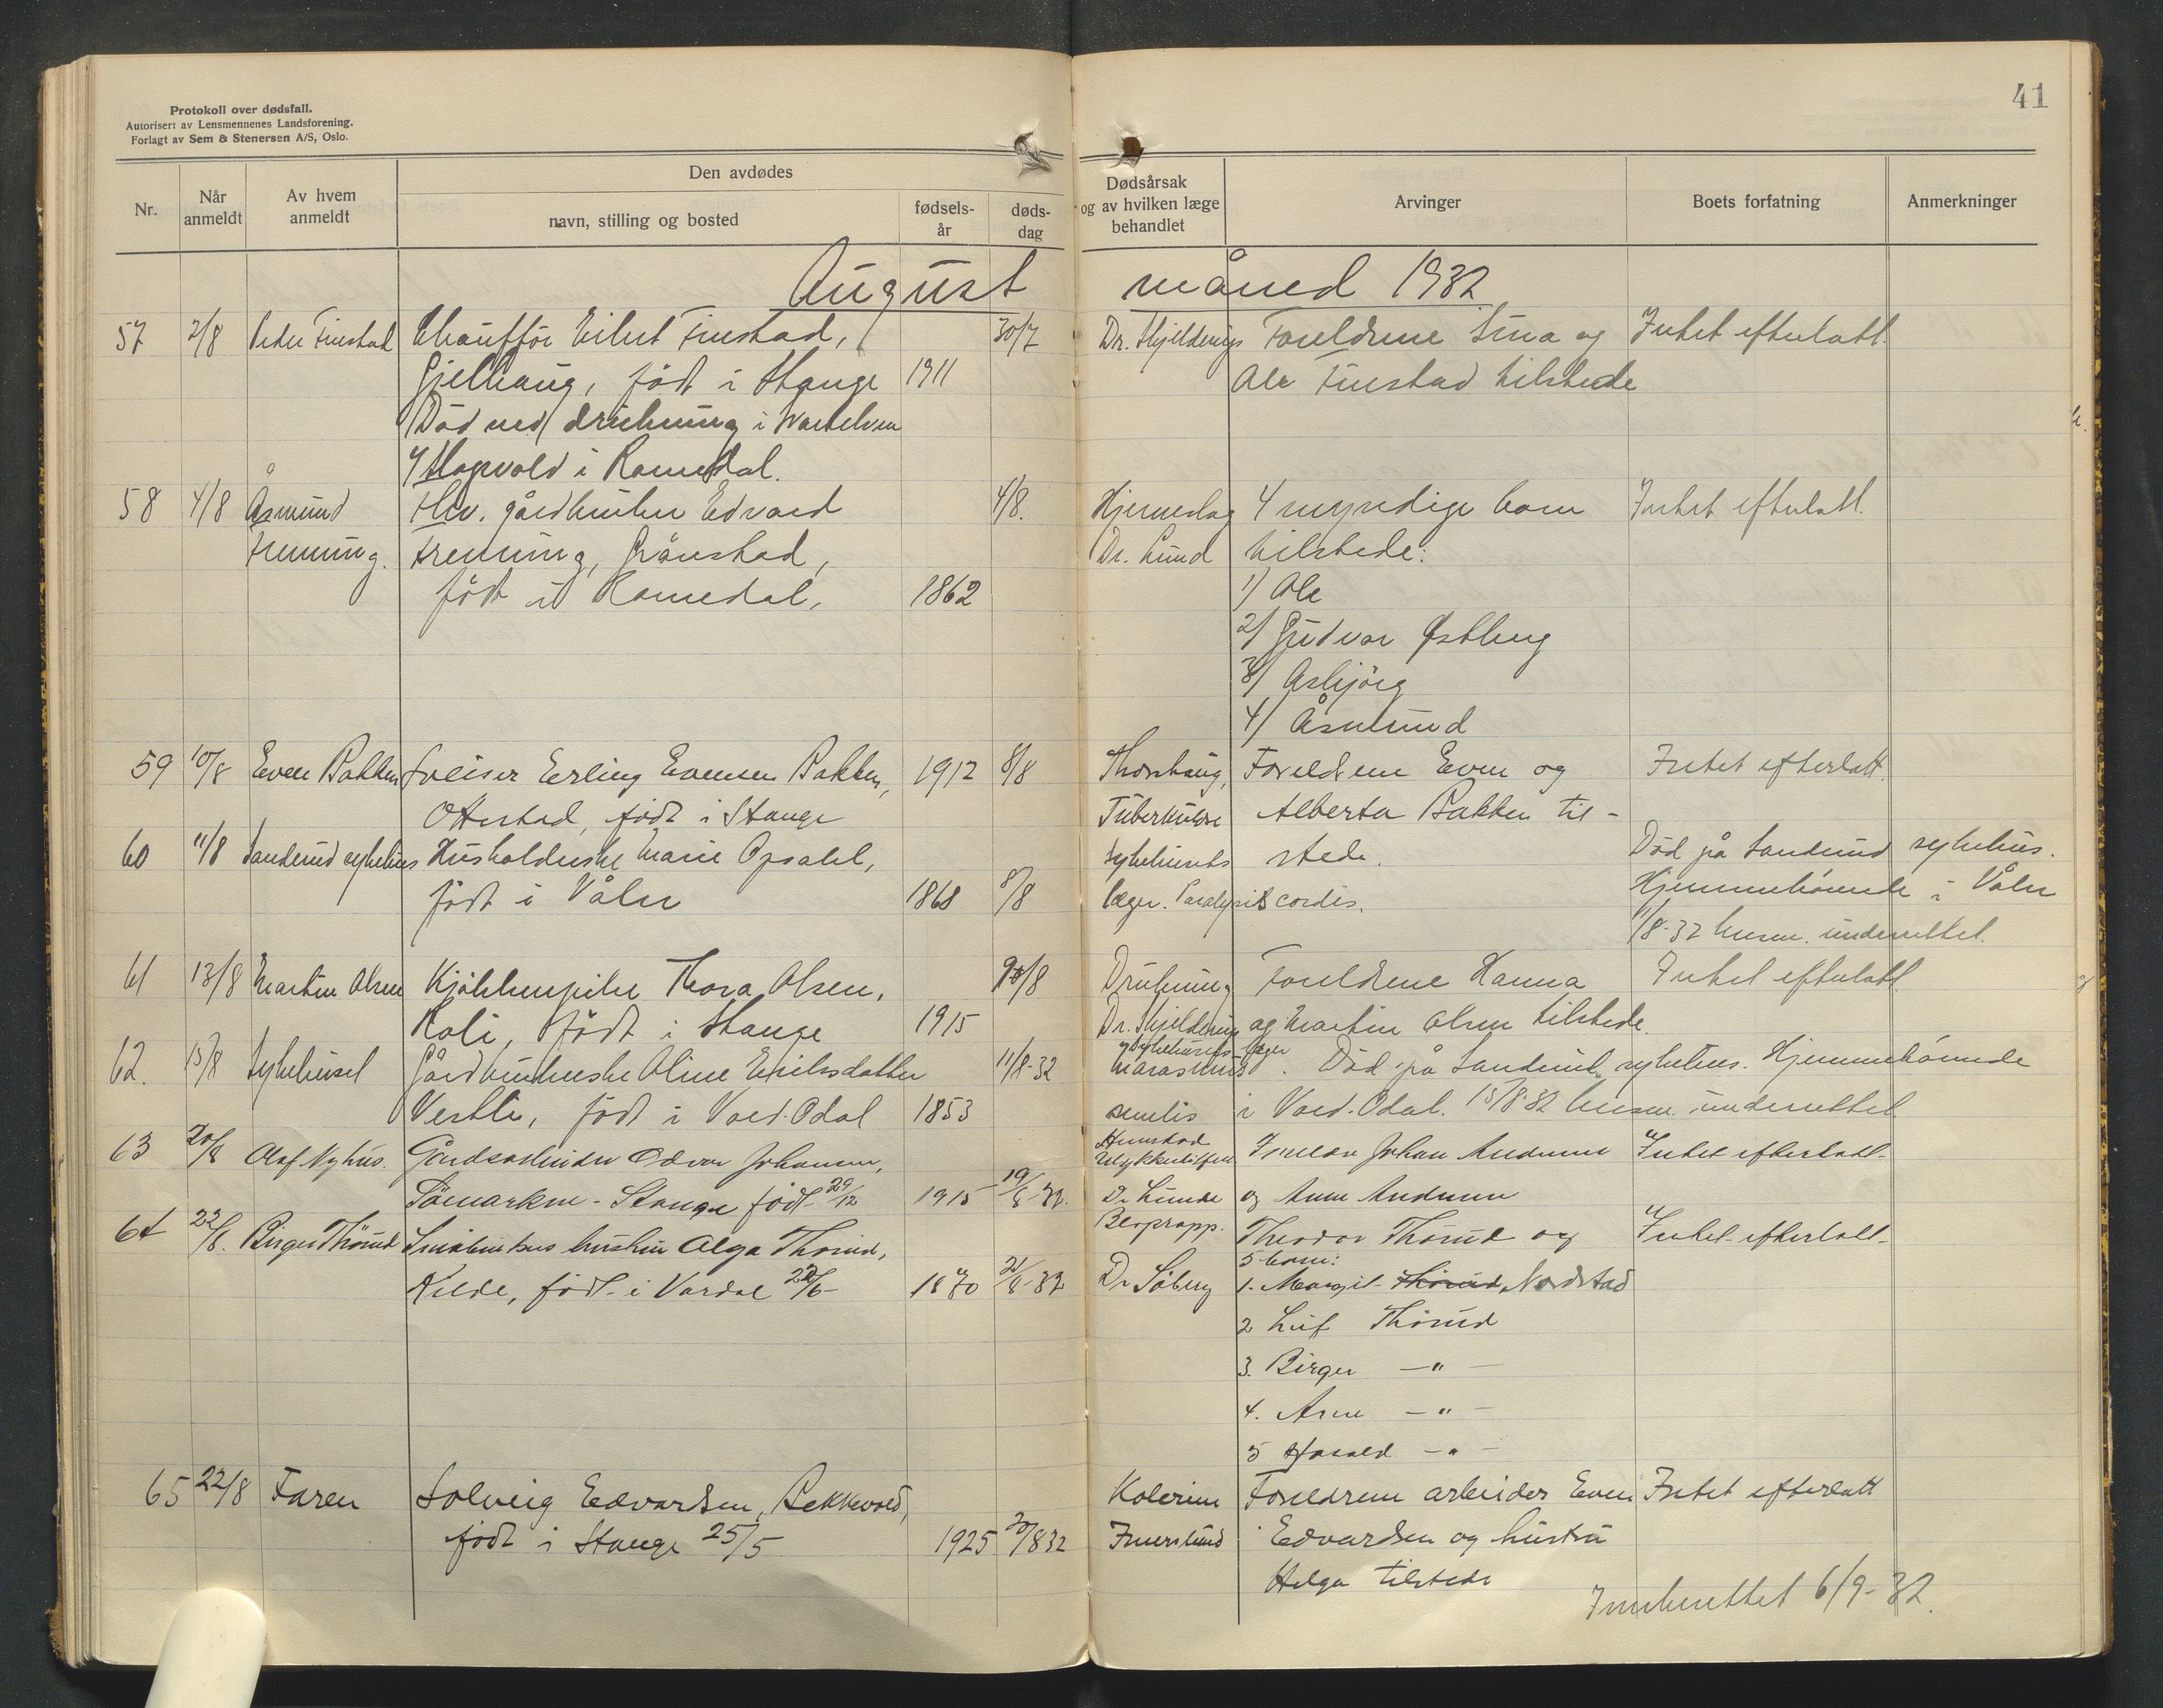 41
Protokoll over dødsfall.
Autorisert av Lensmennenes Landsforening.
Forlagt av Sem & Stenersen A/S, Oslo.
Nr.
Når anmeldt
Av hvem anmeldt
Den avdødes
navn, stilling og bosted
fødsels-år
døds-dag
Dødsårsak og av hvilken læge behandlet
Arvinger
Boets forfatning
Anmerkninger
August måned 1932
57 2/8 Peder Finstad Chaufför Eilert Finstad, 30/7 Dr. Hjeldernes Foreldrene Sina og Intet efterlatt.
Gjelhaug, födt i Stange 1911 Ole Finstad tilstede
Död ved drukning i Svartelven
v/ Hagevold i Romedal.
58 4/8 Åsmund Fhv. gårdbruker Edvard 4/8. Hjerneslag 4 myndige barn Intet efterlatt.
Frenning. Frenning, Grånstad, Dr. Lund tilstede:
födt i Romedal, 1862 1/ Ole
2/ Gudvor Østberg
3/ Asbjörg
4/ Åsmund
59 10/8 Even Bakken Sveiser Erling Evensen Bakken, 1912 8/8 Thorshaug, Foreldrene Even og Intet efterlatt.
Ottestad, födt i Stange Tuberkulose Alberta Bakken til-
60 11/8 Sanderud sykehus Husholderske Marie Opsahl, Sykehusets stede. Död på Sanderud sykehus.
födt i Våler 1868 8/8 læger. Paralysis cordis. Hjemmehörende i Våler
11/8-32 lensm. underrettet.
61 13/8 Martin Olsen Kjökkenpike Thora Olsen, /8 Drukning Foreldrene Hanna Intet efterlatt.
Roli, födt i Stange 1915 Dr. Hjeldernes og Martin Olsen tilstede.
62. 15/8 Sykehuset Gårdbrukerske Oline Eriksdatter 11/8-32 Sykehusets læger Marasmus. Död på Sanderud sykehus. Hjemmehörende
Vestli, födt i Nord-Odal 1853 senilis i Nord-Odal. 15/8 32 lensm. underrettet
63 20/8 Olaf Nyhus. Gårdsarbeider Odvar Johansen, Ulykkestilfelle Foreldre Johan Andersen Intet efterlatt.
- Stange födt 29/12 1915 19/8-32. Dr Lunde og Anne Andersen
64 22/8. Birger Thörud hustru Olga Thörud, Blopropp. Theodor Thörud og Intet efterlatt.
5 barn:
Kilde, födt i Vardal 22/6 1870 21/8-32 Dr Söberg 1. Margit Thörud, Nordstad
2 Leif Thörud
3. Birger —"—
4. Arne —"—
5 Harald —"—
65 22/8 Faren Solveig Edvardsen, Bekkevold, Kolerine Foreldrene arbeider Even Intet efterlatt
födt i Stange 25/5 1925 20/8 32 Imerslund Edvardsen og hustru
Helga tilstede
Innberettet 6/9-32.